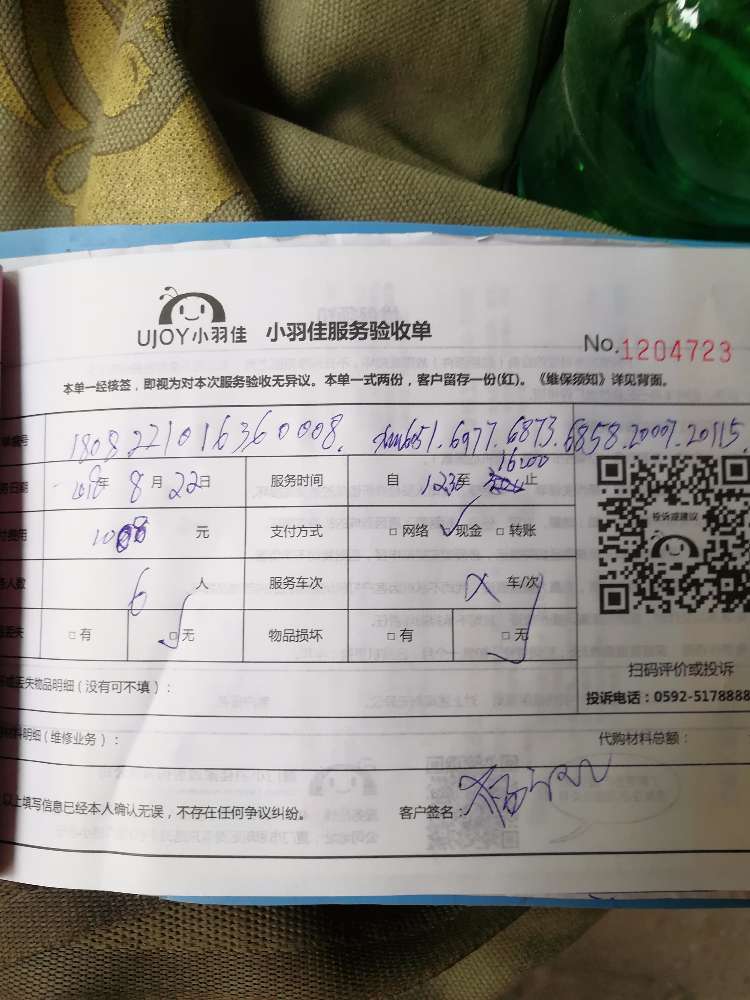 UJOY小羽佳 小羽佳服务验收单
No.1204723
本单一经核签，即视为对本次服务验收无异议。本单一式两份，客户留存一份(红)。《维保须知》详见背面。
单编号 1808221016360008. 6977.6873.6858.20007.20115.
务日期 2018年8月22日 服务时间 自 1230至 16:00 止
费用 元 支付方式 □ 网络 ☑现金 □ 转账
投诉或建议
人数 6 人 服务车次 2 车/次
□ 有 ☑无 物品损坏 □ 有 ☑无
扫码评价或投诉
丢失物品明细（没有可不填）：
投诉电话：0592-5178888
材料明细（维修业务）： 代购材料总额：
以上填写信息已经本人确认无误，不存在任何争议纠纷。 客户签名：